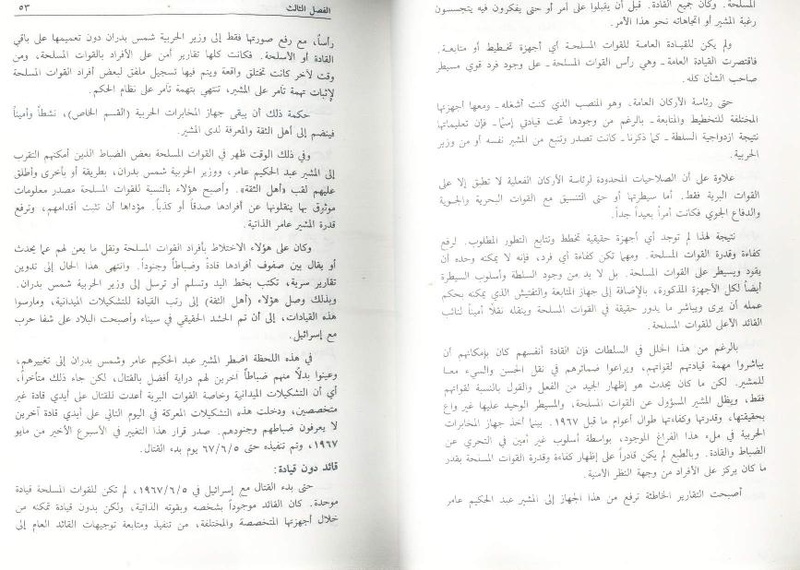 المسلحة. وكان جميع القادة. قبل أن يقبلوا على أمر أو حتى يفكرون فيه يتجسسون
رغبة المشير أو اتجاهاته نحو هذا الأمر.
ولم يكن للقيادة العامة للقوات المسلحة أي أجهزة تخطيط أو متابعة.
فاقتصرت القيادة العامة - وهي رأس القوات المسلحة - على وجود فرد قوي مسيطر
صاحب الشأن كله.
حتى رئاسة الأركان العامة، وهو المنصب الذي كنت أشغله - ومعها أجهزتها
المختلفة للتخطيط والمتابعة - بالرغم من وجودها تحت قيادتي إسماً - فإن تعليماتها
نتيجة ازدواجية السلطة - كما ذكرنا - كانت تصدر وتنبع من المشير نفسه أو من وزير
الحربية.
علاوة على أن الصلاحيات المحدودة لرئاسة الأركان الفعلية لا تطبق إلا على
القوات البرية فقط. أما سيطرتها أو حتى التنسيق مع القوات البحرية والجوية
والدفاع الجوي فكانت أمراً بعيداً جداً.
نتيجة لهذا لم توجد أي أجهزة حقيقية تخطط وتتابع التطور المطلوب. لرفع
كفاءة وقدرة القوات المسلحة. ومهما تكن كفاءة أي فرد، فإنه لا يمكنه وحده أن
يقود ويسيطر على القوات المسلحة. بل لا بد من وجود السلطة وأسلوب السيطرة
أيضاً لكل الأجهزة المذكورة، بالإضافة إلى جهاز المتابعة والتفتيش الذي يمكنه بحكم
عمله أن يرى ويباشر ما يدور حقيقة في القوات المسلحة وينقله نقلاً أميناً لنائب
القائد الأعلى للقوات المسلحة.
بالرغم من هذا الخلل في السلطات فإن القادة أنفسهم كان بإمكانهم أن
يباشروا مهمة قيادتهم لقواتهم، ويراعوا ضمائرهم في نقل الحسن والسيء معا
للمشير. لكن ما كان يحدث هو إظهار الجيد من الفعل والقول بالنسبة لقواتهم
فقط، ويظل المشير المسؤول عن القوات المسلحة، والمسيطر الوحيد عليها غير واع
بحقيقتها، وقدرتها وكفاءتها طوال أعوام ما قبل ١٩٦٧. بينما أخذ جهاز المخابرات
الحربية في ملء هذا الفراغ الموجود، بواسطة أسلوب غير أمين في التحري عن
الضباط والقادة. وبالطبع لم يكن قادراً على إظهار كفاءة وقدرة القوات المسلحة بقدر
ما كان يركز على الأفراد من وجهة النظر الأمنية.
أصبحت التقارير الخاطئة ترفع من هذا الجهاز إلى المشير عبد الحكيم عامر
الفصل الثالث ٥٣
رأساً، مع رفع صورتها فقط إلى وزير الحربية شمس بدران دون تعميمها على باقي
القادة أو الأسلحة. فكانت كلها تقارير أمن على الأفراد بالقوات المسلحة، ومن
وقت لآخر كانت تختلق واقعة ويتم فيها تسجيل ملفق لبعض أفراد القوات المسلحة
لإثبات تهمة تآمر على المشير، تنتهي بتهمة تآمر على نظام الحكم.
حكمة ذلك أن يبقى جهاز المخابرات الحربية (القسم الخاص)، نشطاً وأميناً
فينضم إلى أهل الثقة والمعرفة لدى المشير.
وفي ذلك الوقت ظهر في القوات المسلحة بعض الضباط الذين أمكنهم التقرب
إلى المشير عبد الحكيم عامر، ووزير الحربية شمس بدران، بطريقة أو بأخرى وأطلق
عليهم لقب «أهل الثقة». وأصبح هؤلاء بالنسبة للقوات المسلحة مصدر معلومات
موثوق بها ينقلونها عن أفرادها صدقاً أو كذباً. مؤداها أن تثبت أقدامهم، وترفع
قدرة المشير عامر الذاتية.
وكان على هؤلاء الاختلاط بأفراد القوات المسلحة ونقل ما يعن لهم عما يحدث
أو يقال بين صفوف أفرادها قادة وضباطاً وجنوداً. وانتهى هذا الحال إلى تدوين
تقارير سرية، تكتب بخط اليد وتسلم أو ترسل إلى وزير الحربية شمس بدران.
وبذلك وصل هؤلاء (أهل الثقة) إلى رتب القيادة للتشكيلات الميدانية، ومارسوا
هذه القيادات، إلى أن تم الحشد الحقيقي في سيناء وأصبحت البلاد على شفا حرب
مع إسرائيل.
في هذه اللحظة اضطر المشير عبد الحكيم عامر وشمس بدران إلى تغييرهم،
وعينوا بدلاً منهم ضباطاً آخرين لهم دراية أفضل بالقتال، لكن جاء ذلك متأخراً،
أي أن التشكيلات الميدانية وخاصة القوات البرية أعدت للقتال على أيدي قادة غير
متخصصين، ودخلت هذه التشكيلات المعركة في اليوم التالي على أيدي قادة آخرين
لا يعرفون ضباطهم وجنودهم. صدر قرار هذا التغيير في الأسبوع الأخير من مايو
١٩٦٧، وتم تنفيذه حتى ٦٧/٦/٥ يوم بدء القتال.
قائد دون قيادة:
حتى بدء القتال مع إسرائيل في ١٩٦٧/٦/٥، لم تكن للقوات المسلحة قيادة
موحدة. كان القائد موجوداً بشخصه وبقوته الذاتية، ولكن بدون قيادة تمكنه من
خلال أجهزتها المتخصصة والمختلفة، من تنفيذ ومتابعة توجيهات القائد العام إلى